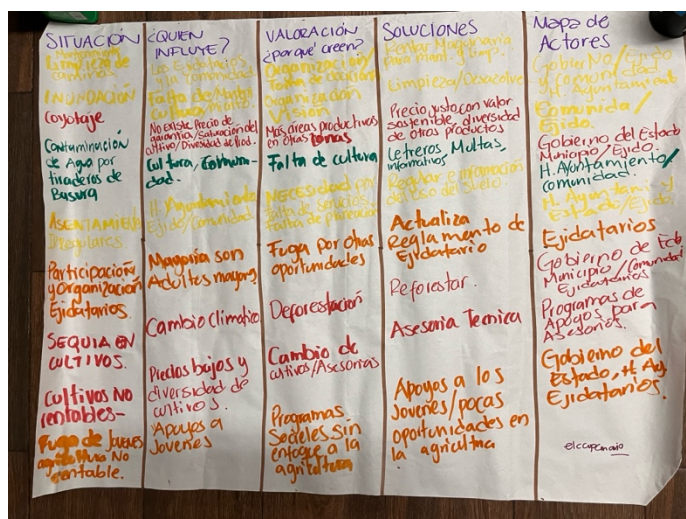 SITUACIÓN
Limpieza de
caminos
INUNDACIÓN
Coyotaje
Contaminación
de Agua por
tiraderos de
Basura
ASENTAMIENTOS
Irregulares
Participación
y organización
Ejidatarios.
SEQUIA EN
CULTIVOS.
Cultivos No
rentables-
Fuga de Jovenes
agricultura No
rentable.
¿QUIEN
INFLUYE?
Los Ejidatarios
y la Comunidad
Falta de
Cultura
No existe Precio de
garantia/saturación del
cultivo/Diversidad de Prod.
Cultura, Comuni-
dad.
H. Ayuntamiento
Ejido/Comunidad.
Mayoria son
Adultos mayores
Cambio Climatico
Precios bajos y
diversidad de
cultivos.
Apoyos a
Jovenes
VALORACIÓN
¿por qué creen?
Organización/
Toma de
Organización
Visión
Mas areas productivas
en otras zonas
Falta de cultura
NECESIDAD
Falta de servicios.
Falta de planeación
Fuga por otras
oportunidades
Deforestación
Cambio de
cultivos/Asesorias
Programas
Sedeles sin
enfoque a la
agricultura
SOLUCIONES
Rentar Maquinaria
Para mant. y Limp.
Limpieza/Desazolve
Precio justo con valor
sostenible, diversidad
de otros productos
Letreros Multas,
informativos
Regular e información
del Uso del Suelo
Actualiza
Reglamento de
Ejidatario
Reforestar.
Asesoria Tecnica
Apoyos a los
Jovenes/pocas
oportunidades en
la agricultura
Mapa de
Actores
Gobierno/Ejido
y Comunidad
H. Ayuntamiento
Comunidad/
Ejido.
Gobierno del Estado
Municipio/Ejido.
H. Ayuntamiento/
comunidad.
H. Ayuntami y
Estado/Ejido
Ejidatarios
Gobierno de Edo
Municipio/Comunidad
Ejidatarios
Programas de
Apoyos para
Asesorios.
Gobierno del
Estado, H. Ayu
Ejidatarios.